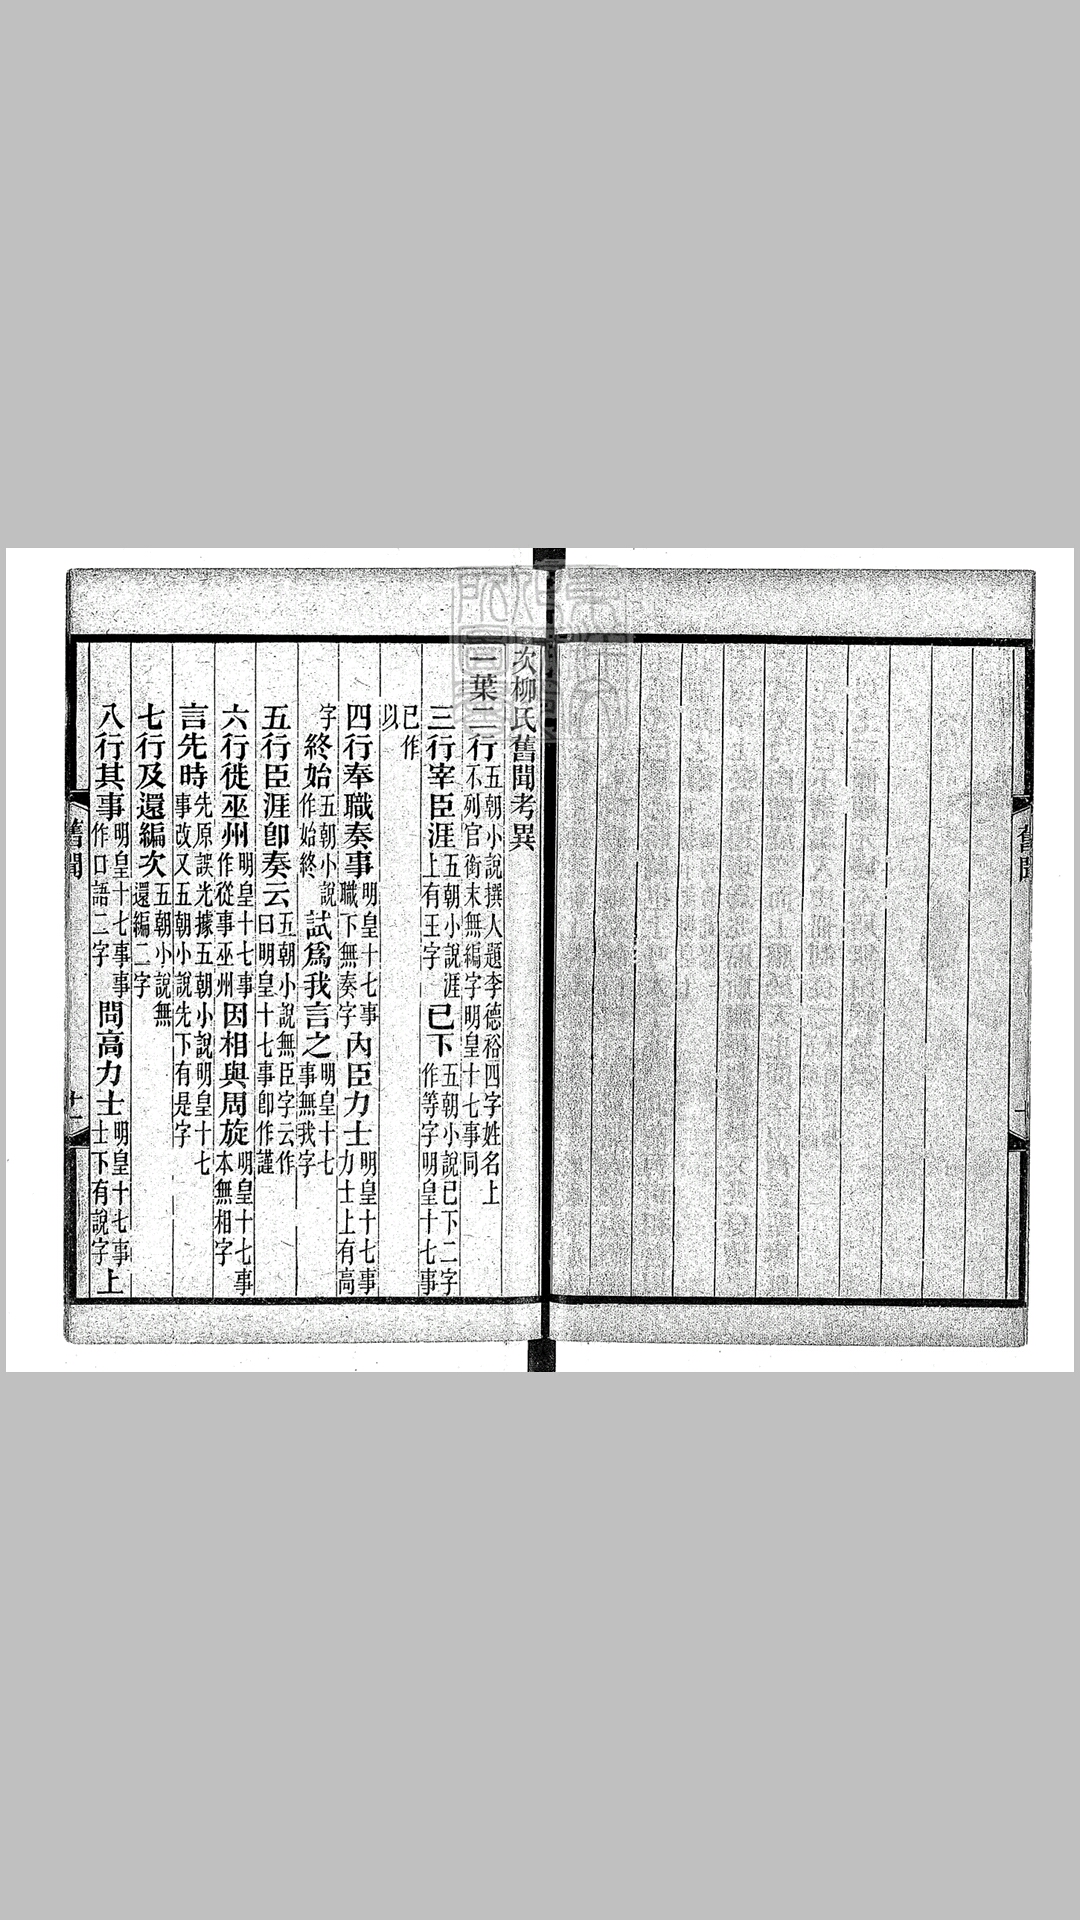 次柳氏舊聞考異
一葉二行五朝小說撰人題李德裕四字姓名上不列官銜末無編字明皇十七事同
三行宰臣涯五朝小說涯上有王字已下五朝小說已下二字作等字明皇十七事
已作以
四行奉職奏事明皇十七事職下無奏字內臣力士明皇十七事力士上有高
字終始五朝小說作始終試爲我言之明皇十七事無我字
五行臣涯卽奏云五朝小說無臣字云作曰明皇十七事卽作謹
六行徙巫州明皇十七事作從事巫州因相與周旋明皇十七事本無相字
言先時先原誤光據五朝小說明皇十七事改又五朝小說先下有是字
七行及還編次五朝小說無還編二字
八行其事明皇十七事事作口語二字問高力士明皇十七事士下有說字上
舊聞
舊聞